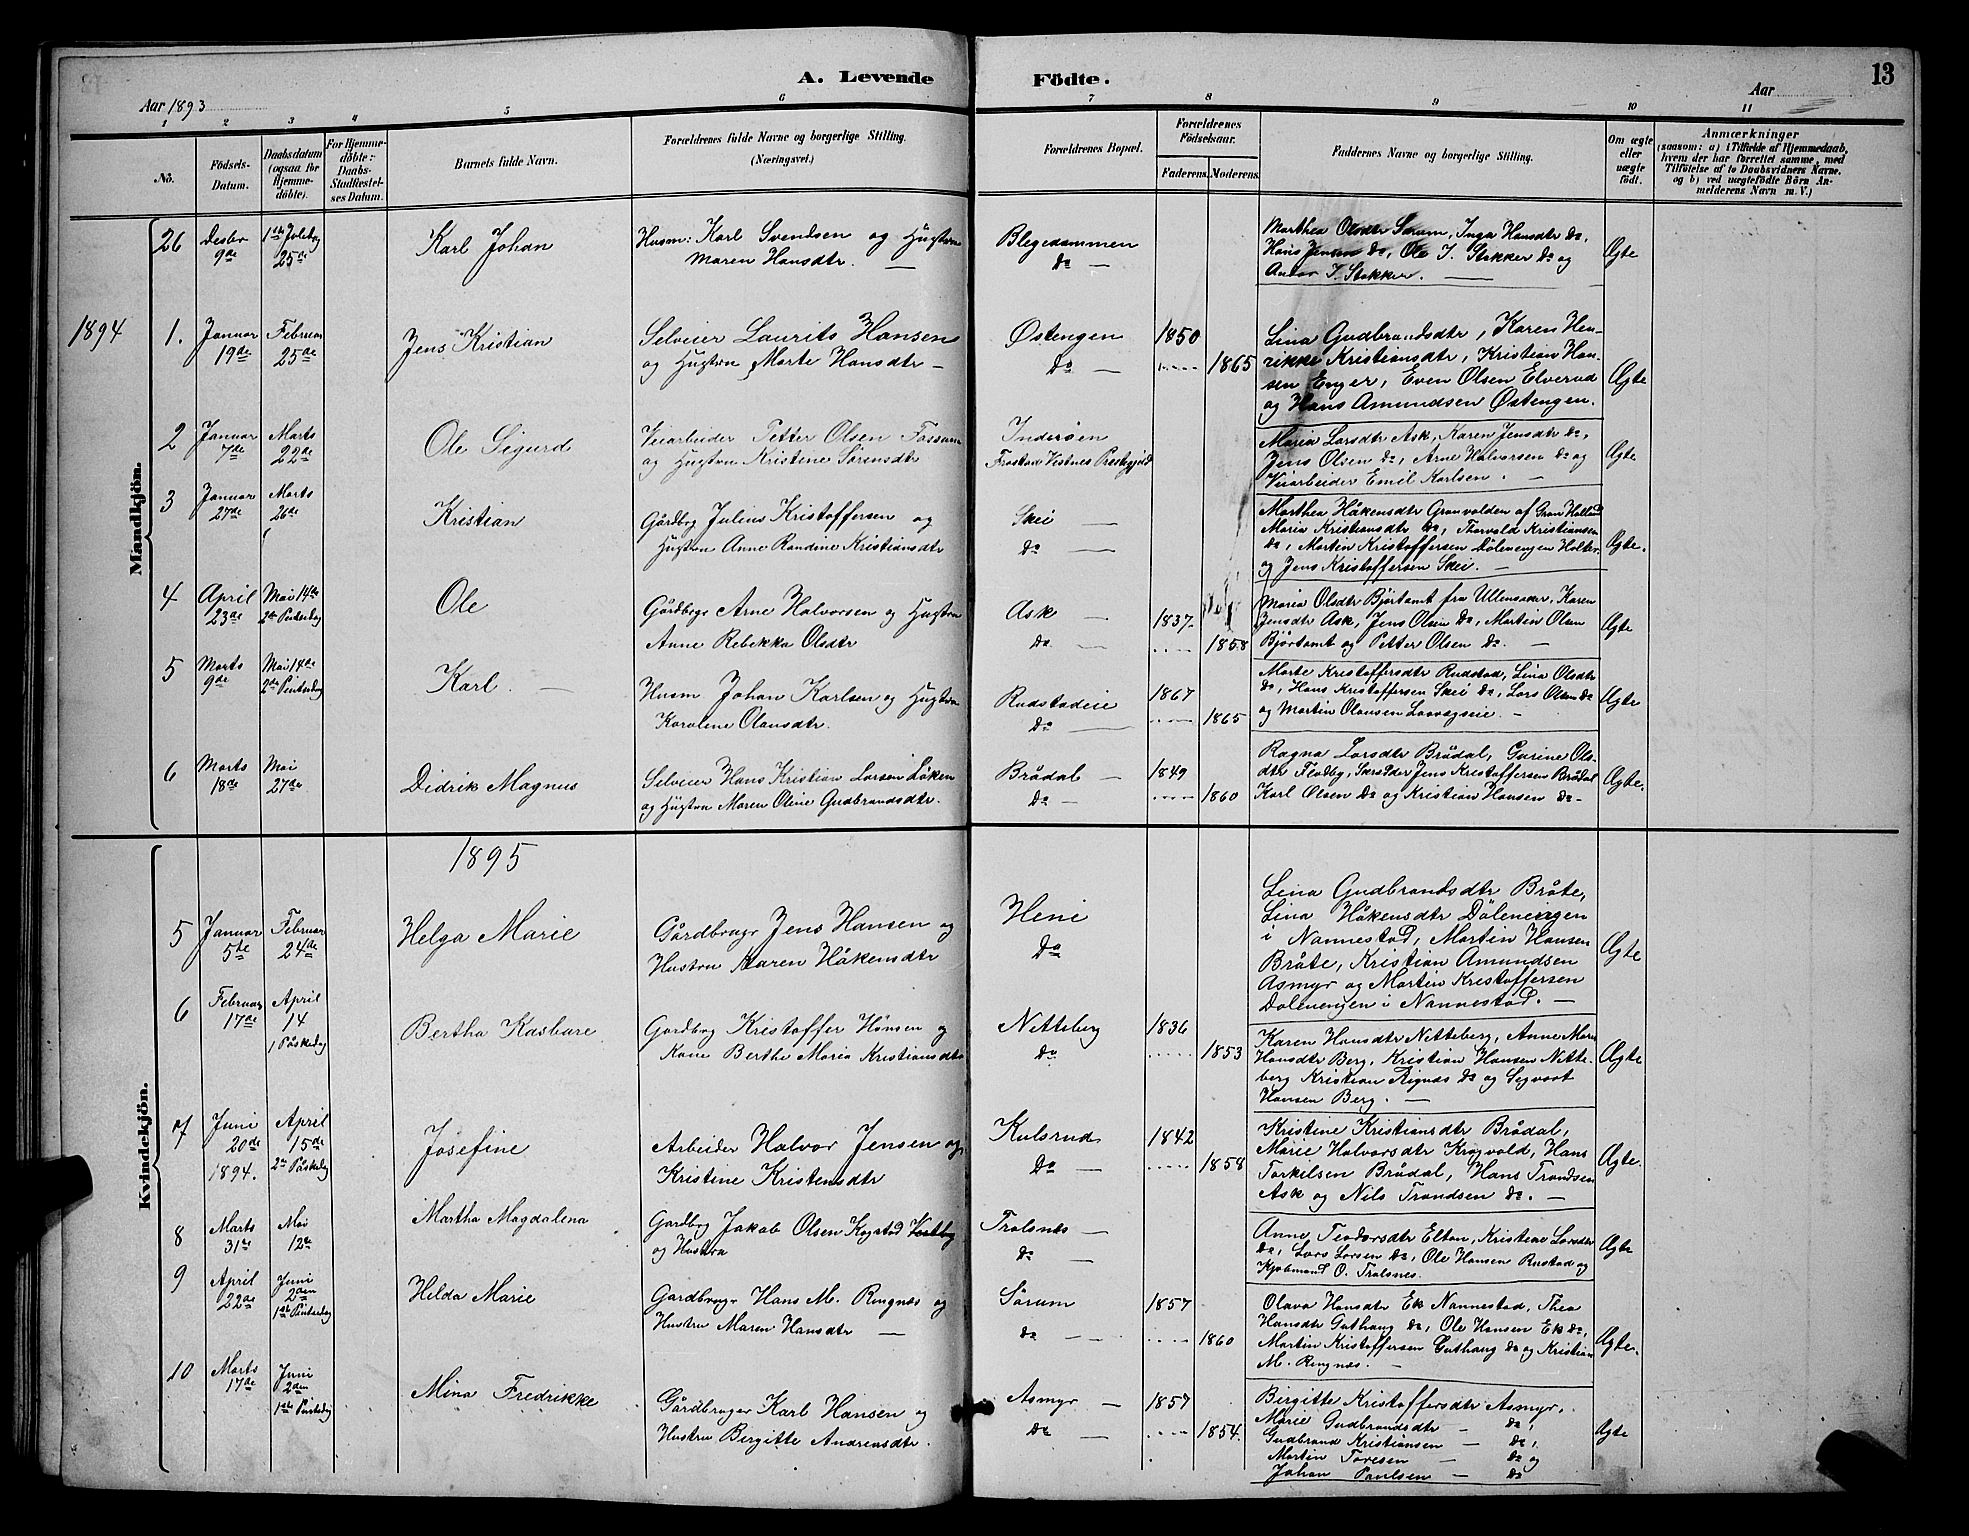 A. Levende Födte.
13
Aar 1893
Aar
1 2 3 4 5 6 7 8 9 10 11
No.
Födsels-
Datum.
Daabsdatum
(ogsaa for
Hjemme-
döbte).
For Hjemme-
döbte:
Daabs-
Stadfæstel-
ses Datum.
Barnets fulde Navn.
Forældrenes fulde Navne og borgerlige Stilling.
(Næringsvei.)
Forældrenes Bopæl.
Forældrenes
Födselsaar.
Faderens. Moderens.
Faddernes Navne og borgerlige Stilling.
Om ægte
eller
uægte
födt.
Anmærkninger
(saasom: a) i Tilfælde af Hjemmedaab,
hvem der har forrettet samme, med
Tilföielse af to Daabsvidners Navne.
og b) ved uægtefödte Börn An-
melderens Navn m. V.)
Mandkjön.
26
Desbr
9de
1ste Juledag
25de
Karl Johan
Husm: Karl Svendsen og Hugtru
Maren Hansdtr. —
Blegedammen
do —
Marthea Olsdtr Sørum, Inga Hansdtr do,
Hans Jensen do, Ole J. Stokker do og
Anton J. Stokker. —
Ægte
1894
1.
Januar
19de
Februar
25de
Jens Kristian
Selveier Laurits Hansen
og Hugtru Marte Hansdtr —
Østengen
do —
1850
1865
Lina Gudbrandsdtr, Karen Hen-
rikke Kristiansdtr, Kristian Han-
sen Enger, Even Olsen Elverud
og Hans Amundsen Østengen.
Ægte
2
Januar
7de
Marts
22de
Ole Sigurd
Veiarbeider Petter Olsen Fossum
og Hugtru Kristine Sørensdtr
Inderøen
Frostad Vestnes Prestegjeld
Maria Larsdtr Ask, Karen Jensdtr do,
Jens Olsen do, Arne Halvorsen do og
Veiarbeider Emil Karlsen. —
Ægte
3
Januar
27de
Marts
26de
Kristian
Gårdbrg Julius Kristoffersen og
Hugtru Anne Randine Kristiansdtr
Skei —
do —
Marthea Håkensdtr Granvolden af Gran Hadeland
Maria Kristiansdtr do, Thorvald Kristiansen
do, Morten Kristoffersen Dølenengen Holter
og Jens Kristoffersen Skei. —
Ægte.
4
April
23de
Mai 14de
2den Pintsedag
Ole
Gårdbrgr Arne Halvorsen og Hugtru
Anne Rebekka Olsdtr
Ask —
do. —
1837
1858
Maria Olsdtr Bjørtomt fra Ullensaker, Karen
Jensdtr Ask, Jens Olsen do, Martin Olsen
Bjørtomt og Petter Olsen do. —
Ægte
5
Marts
9de
Mai 14de
2de Pintsedag
Karl. —
Husm Johan Karlsen og Hugtru
Karoline Olausdtr.
Rudstadeie
do —
1867
1865
Marte Kristoffersdtr Rudstad, Lina Olsdtr
do, Hans Kristoffersen Skei do, Lars Olsen do
og Martin Olausen Laavegseie. —
Ægte
6
Marts
18de
Mai
27de
Didrik Magnus
Selveier Hans Kristian Larsen Løken
og Hugtru Maren Oline Gudbrandsdtr.
Brådal —
do —
1849
1860
Ragna Larsdtr Brådal, Gurine Ols-
dtr Flodby, Jens Kristoffersen Brådal
Karl Olsen do og Kristian Hansen do —
Ægte.
Kvindekjön.
1895
5
Januar
5te
Februar
24de
Helga Marie
Gårdbrugr Jens Hansen og
Hustru Karen Håkensdtr
Heni
do
Lina Gudbrandsdtr Bråte,
Lina Håkensdtr Døleneigen
i Nannestad, Martin Hansen
Bråte, Kristian Amundsen
Asmyr og Martin Kristoffersen
Dølenengen i Nannestad. —
Ægte
6
Februar
17de
April
14
1 Påskedag
Bertha Kasbare
Gardbrg Kristoffer Hansen og
Kone Berthe Maria Kristiansdtr
Netteberg
do
1836
1853
Karen Hansdtr Nitteberg, Anne Marie
Hansdtr Berg, Kristian Hansen Nitte-
berg Kristian Rignæs do og Segvart
Hansen Berg. —
Ægte
7
Juni
20de
1894.
April
15de
2de Påskedag
Josefine
Arbeider Halvor Jensen og
Kristine Kristensdtr
Kulsrud
do —
1842
1858
Kristine Kristiansdtr Brådal,
Marie Halvorsdtr Krogvold, Hans
Torkelsen Brådal, Hans Trondsen
Ask og Nils Trondsen do. —
Ægte.
8
Marts
31te
Mai
12te
Martha Magdalena
Gardbrg Jakob Olsen Kogstad Vestby
og Hustru
Trolsnes —
do —
Anne Teodorsdtr Elton, Kristine Larsdtr
do, Lars Larsen do, Ole Hansen Rustad og
Kjøbmand O. Trolsnes.
Ægte
9
April
22de
Juni
2den
1ste Pintsedag
Helda Marie
Gardbrugr Hans M. Ringnæs og
Hustru Maren Hansdtr —
Sørum
do —
1857
1860
Olava Hansdtr Ek Nannestad, Thea
Hansdtr Guthaug do, Ole Hansen Ek do,
Martin Kristoffersen Guthaug do og Kristian
M. Ringnæs. —
Ægte.
10
Marts
17de
Juni
2den
1ste Pintsedag
Mina Fredrikke
Gårdbruger Karl Hansen og
Hustru Bergitte Andreasdtr.
Asmyr —
do —
1857
1854.
Birgitte Kristoffersdtr Asmyr,
Marie Gudbrandsdtr — do,
Gudbrand Kristiansen — do,
Martin Toresen — do og
Johan Paulsen — do
Ægte